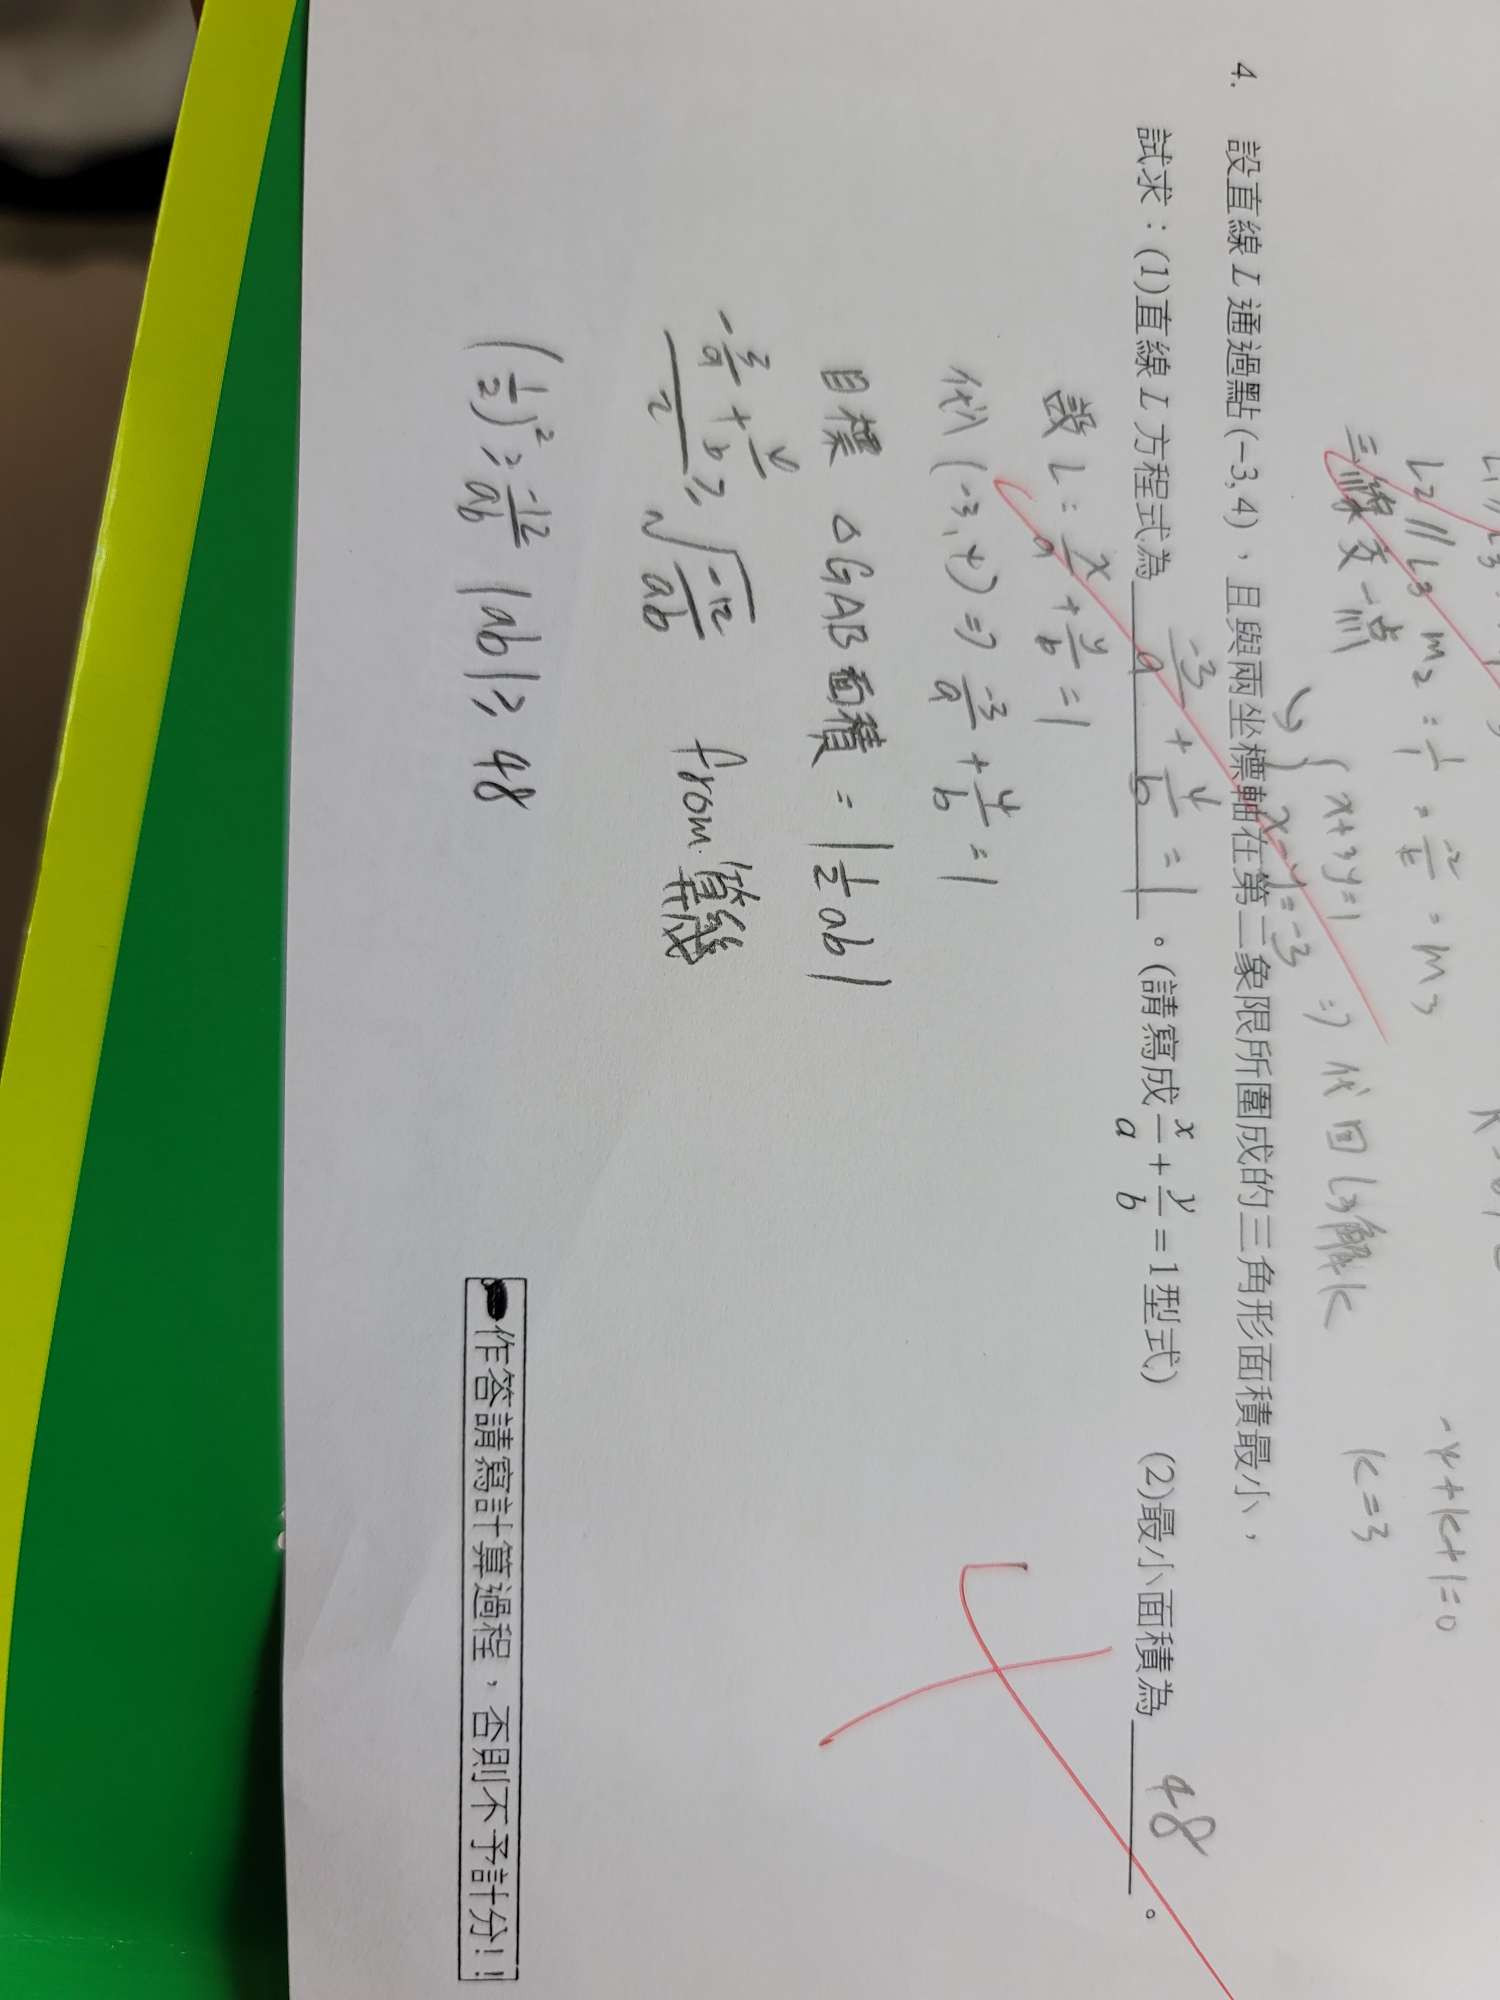 L₂∥L₃ m₂=1/1=-2/k=m₃
-4+k+1=0
三線交一点 {x+3y=1
x-y=-3 ⇒代回L3解k k=3
4. 設直線 L 通過點(−3,4)，且與兩坐標軸在第二象限所圍成的三角形面積最小，
試求：(1)直線 L 方程式為 -3/a+4/b=1 。(請寫成 x/a + y/b = 1型式) (2)最小面積為 48 。
設 L: x/a + y/b = 1
代入 (-3,4) ⇒ -3/a + 4/b = 1
目標 △GAB面積 = |1/2 ab|
(-3/a + 4/b)/2 ≥ √(-12/ab) from 算幾
(1/2)² ≥ -12/ab |ab| ≥ 48
作答請寫計算過程，否則不予計分!!